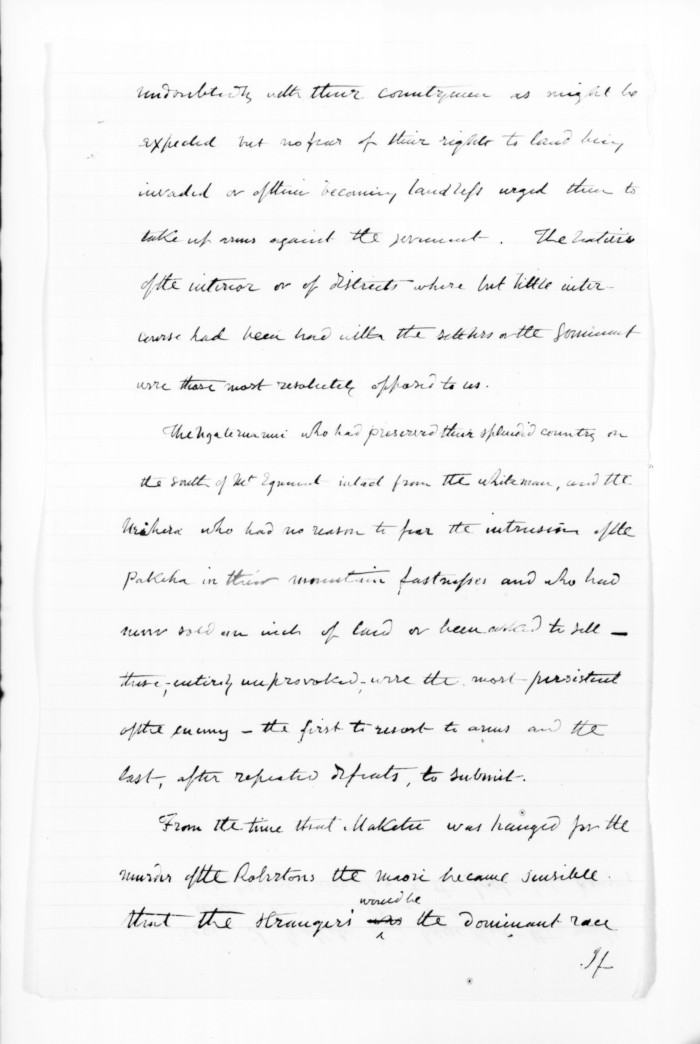 undoubtedly with their countrymen as might be
expected but no fear of their rights to land being
invaded or of their becoming landless urged them to
take up arms against the government. The natives
of the interior or of districts where but little inter-
course had been had with the settlers or the Government
were those most resolutely opposed to us.
The Ngateruanui who had preserved their splendid country on
the South of Mt Egmont intact from the white man, and the
Uriwera who had no reason to fear the intrusion of the
Pakeha in their mountain fastnesses and who had
never sold an inch of land or been asked to sell —
these, entirely unprovoked, were the most persistent
of the enemy — the first to resort to arms and the
last, after repeated defeats, to submit.
From the time that Maketu was hanged for the
murder of the Robertons the maori became sensible
would be
that the strangers was the dominant race
If